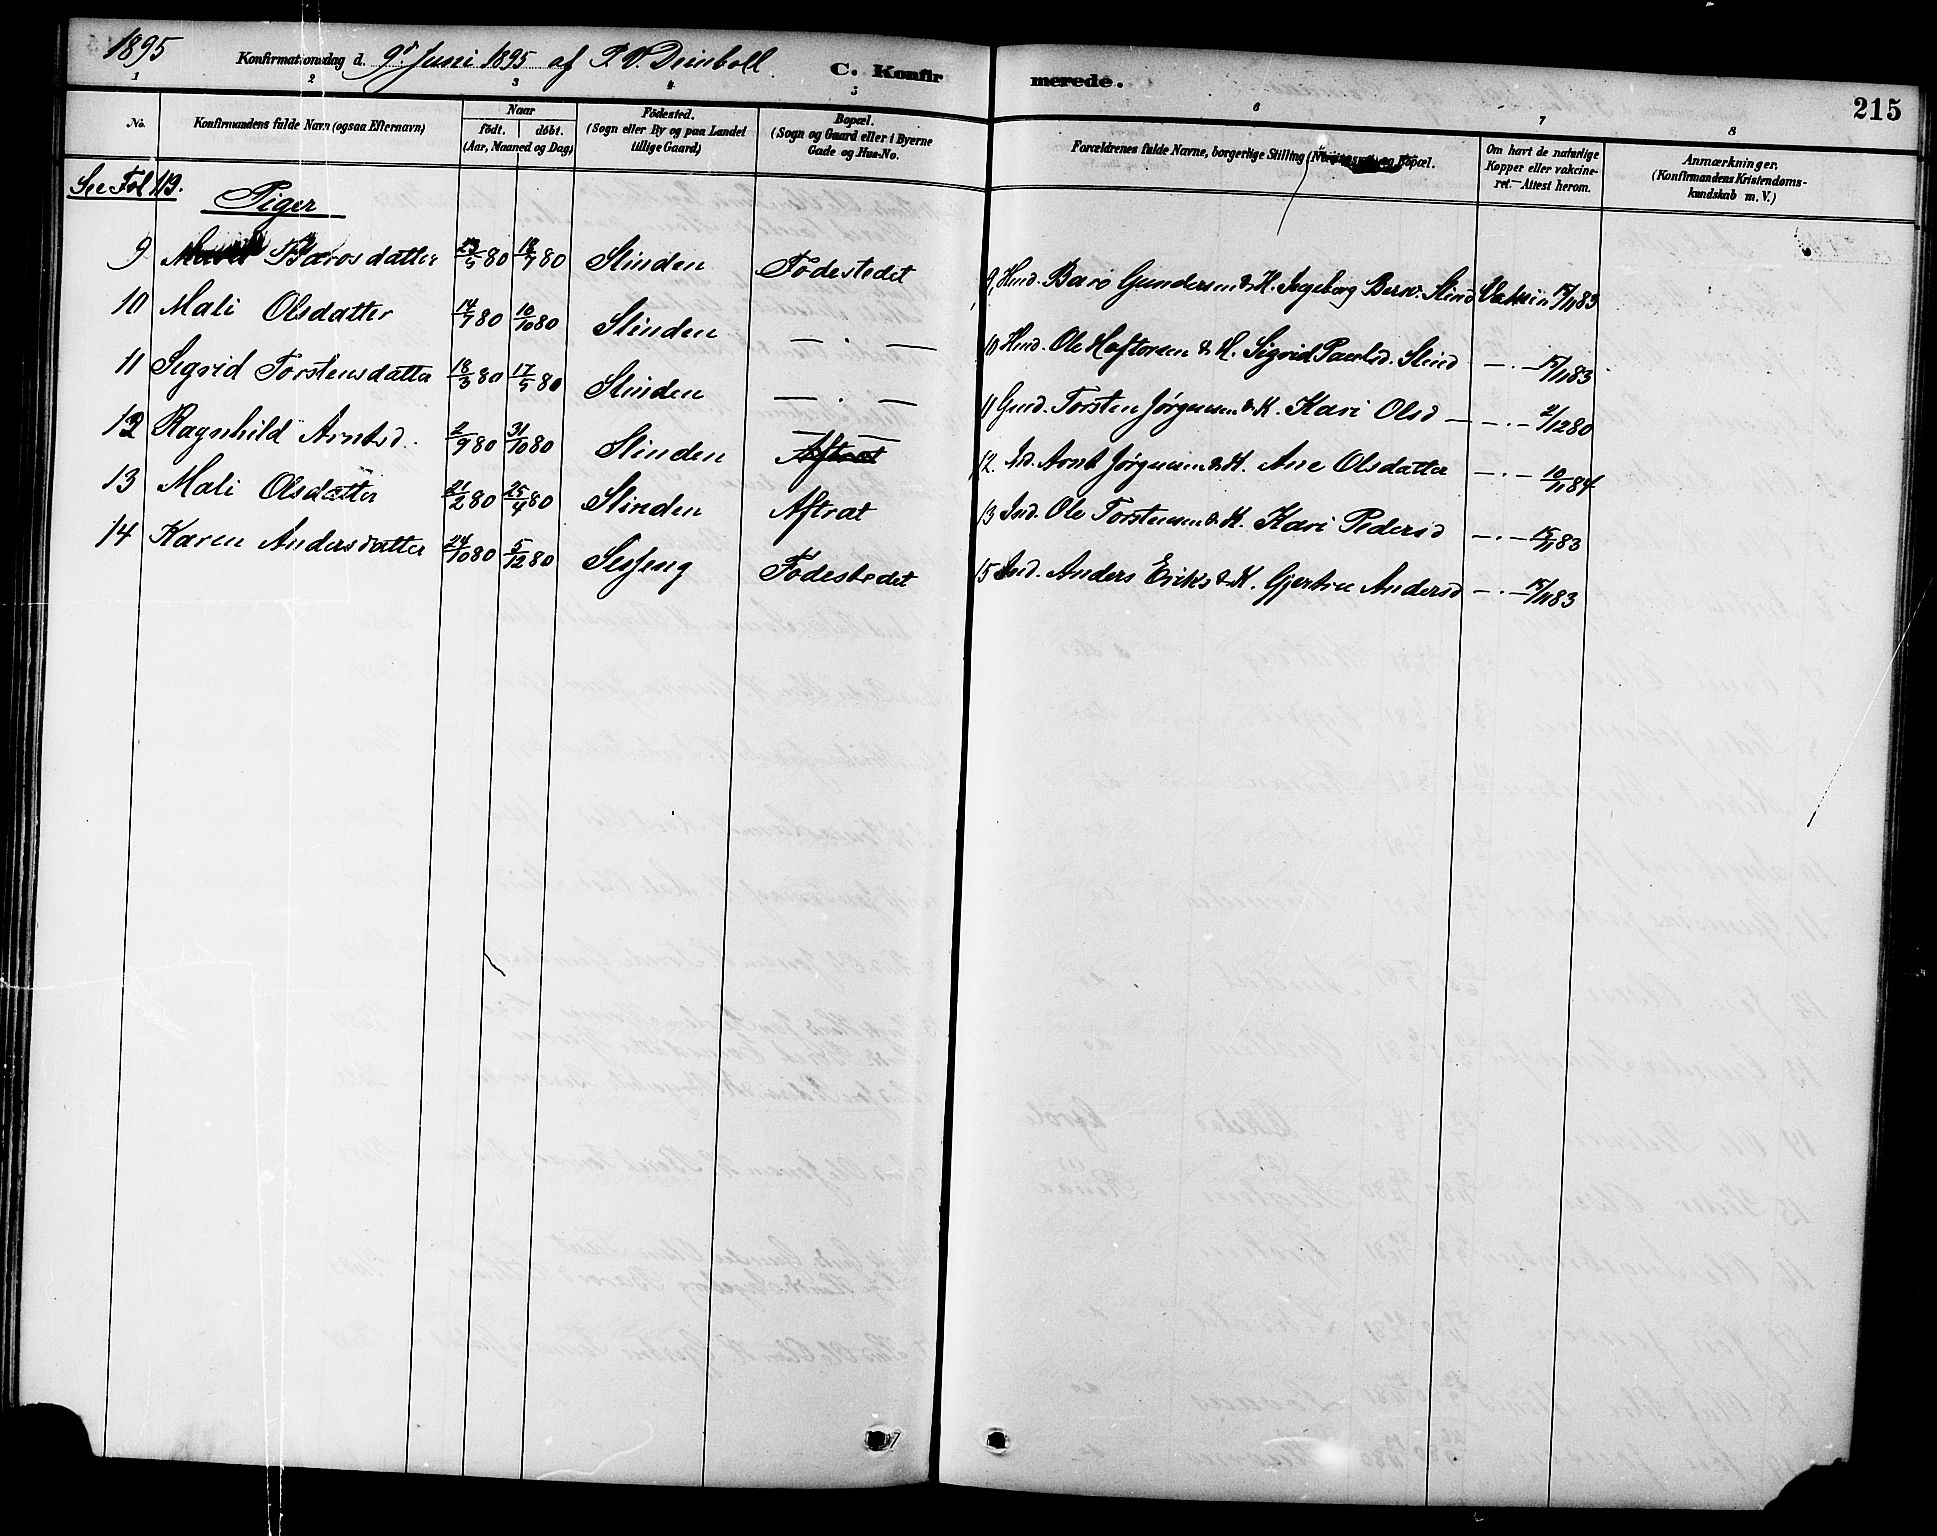 1895 Konfirmationsdag d. 9d Juni 1895 af P. V. Deinboll C. Konfirmerede. 215
1 2 3 4 5 6 7 8
No. Konfirmandens fulde Navn (ogsaa Efternavn) Naar født. døbt. (Aar, Maaned og Dag) Fødested. (Sogn eller By og paa Landet tillige Gaard) Bopæl. (Sogn og Gaard eller i Byerne Gade og Hus-No. Forældrenes fulde Navne, borgerlige Stilling og Bopæl. Om havt de naturlige Kopper eller vakcineret.—Attest herom. Anmærkninger. (Konfirmandens Kristendomskundskab m. V.)
See Fol 113.
Piger
9 Baarosdatter 23/5 80 18/7 80 Slinden Fødestedet 9, Hmd. Baro Gundersen & K. Ingeborg Slind Vaksin 15/11 83
10 Mali Olsdatter 14/7 80 10/10 80 Slinden — . — 10 Hmd. Ole Haftorsen & K. Sigrid Paulsd. Slind — . — 15/11 83
11 Sigrid Torstensdatter 18/3 80 17/5 80 Slinden — . — 11 Gmd. Torsten Jørgensen & K. Kari Olsd — — . — 2/12 80
12 Ragnhild Arntsd. 2/9 80 31/10 80 Slinden — — Aftrat 12. Ind. Arnt Jørgensen & K. Ane Olsdatter — . — 10/11 84
13 Mali Olsdatter 21/2 80 25/4 80 Slinden Aftrat 13 Ind. Ole Torstensen & K. Kari Pedersd — . — 15/11 83
14 Karen Andersdatter 24/10 80 5/12 80 Sesseng Fødestedet 15 Ind. Anders Eriks & K. Gjertru Andersd — . — 15/11 83